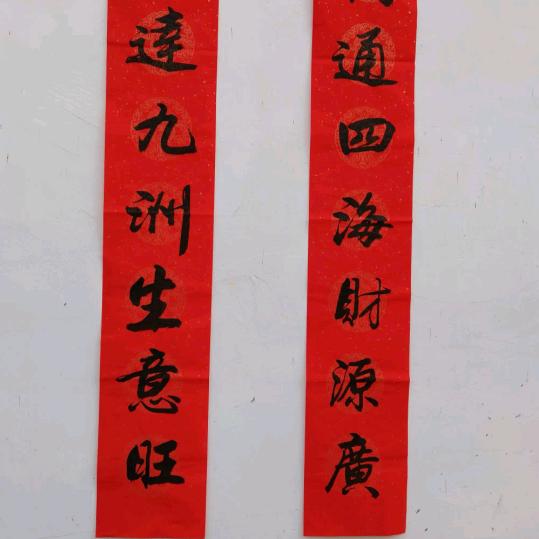 通四海財源廣
達九洲生意旺